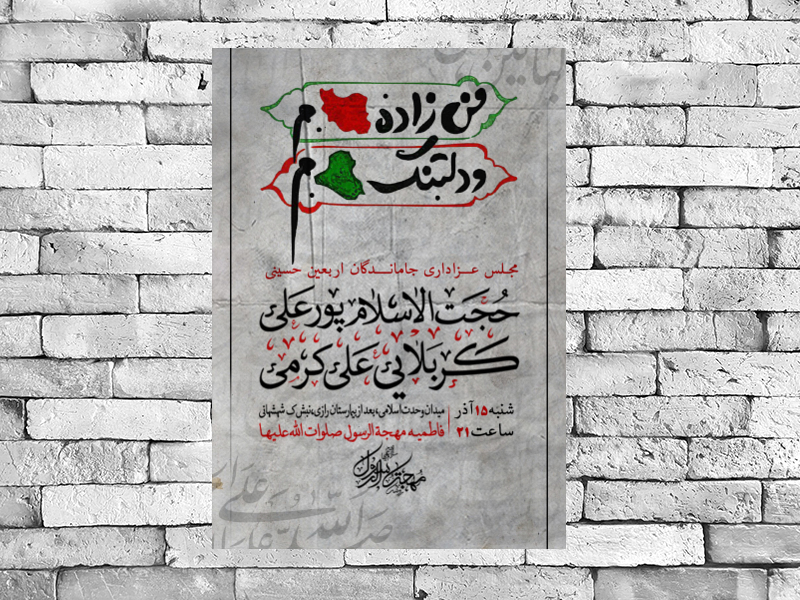 من زاده م
و دلتنگ م
مجلس عزاداری جاماندگان اربعین حسینی
حُجَت الاسلام پورعَلی
کربلایی عَلی کَرَمی
شنبه ۱۵ آذر
ساعت ۲۱
میدان وحدت اسلامی، بعد از بیمارستان رازی، نبش ک شهشهانی
فاطمیه مهجة الرسول صلوات الله علیها